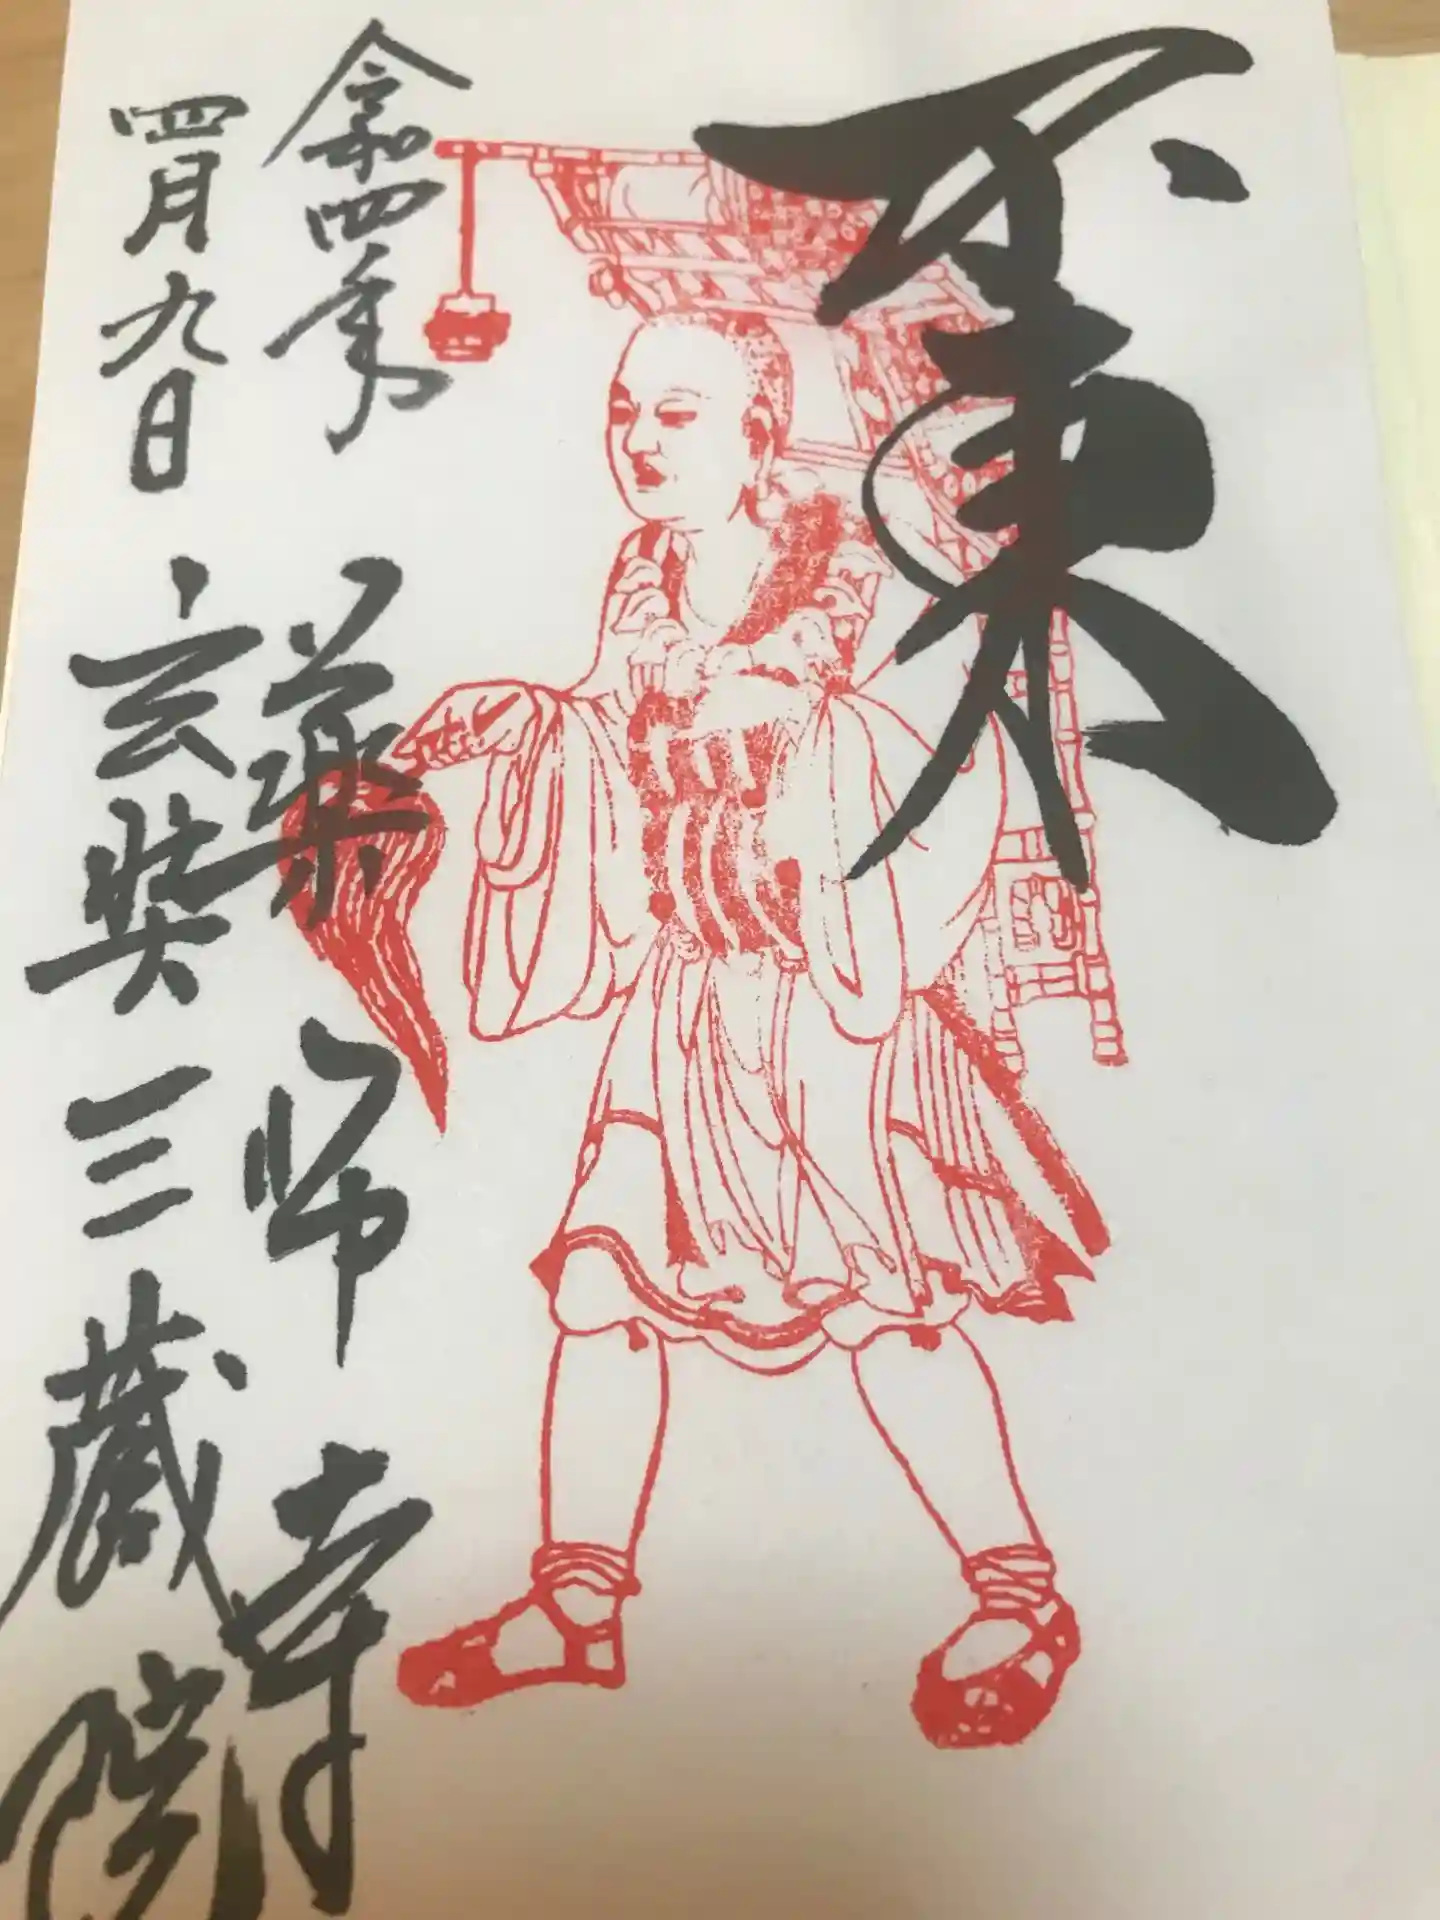 不東
令和四年
四月九日
薬師寺
玄奘三蔵院